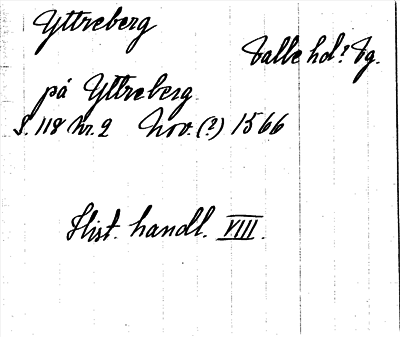 Yttreberg
Valle hd? Vg.
på Yttreberg
S. 118 nr. 2 Nov. (?) 1566
Hist. handl. VIII.